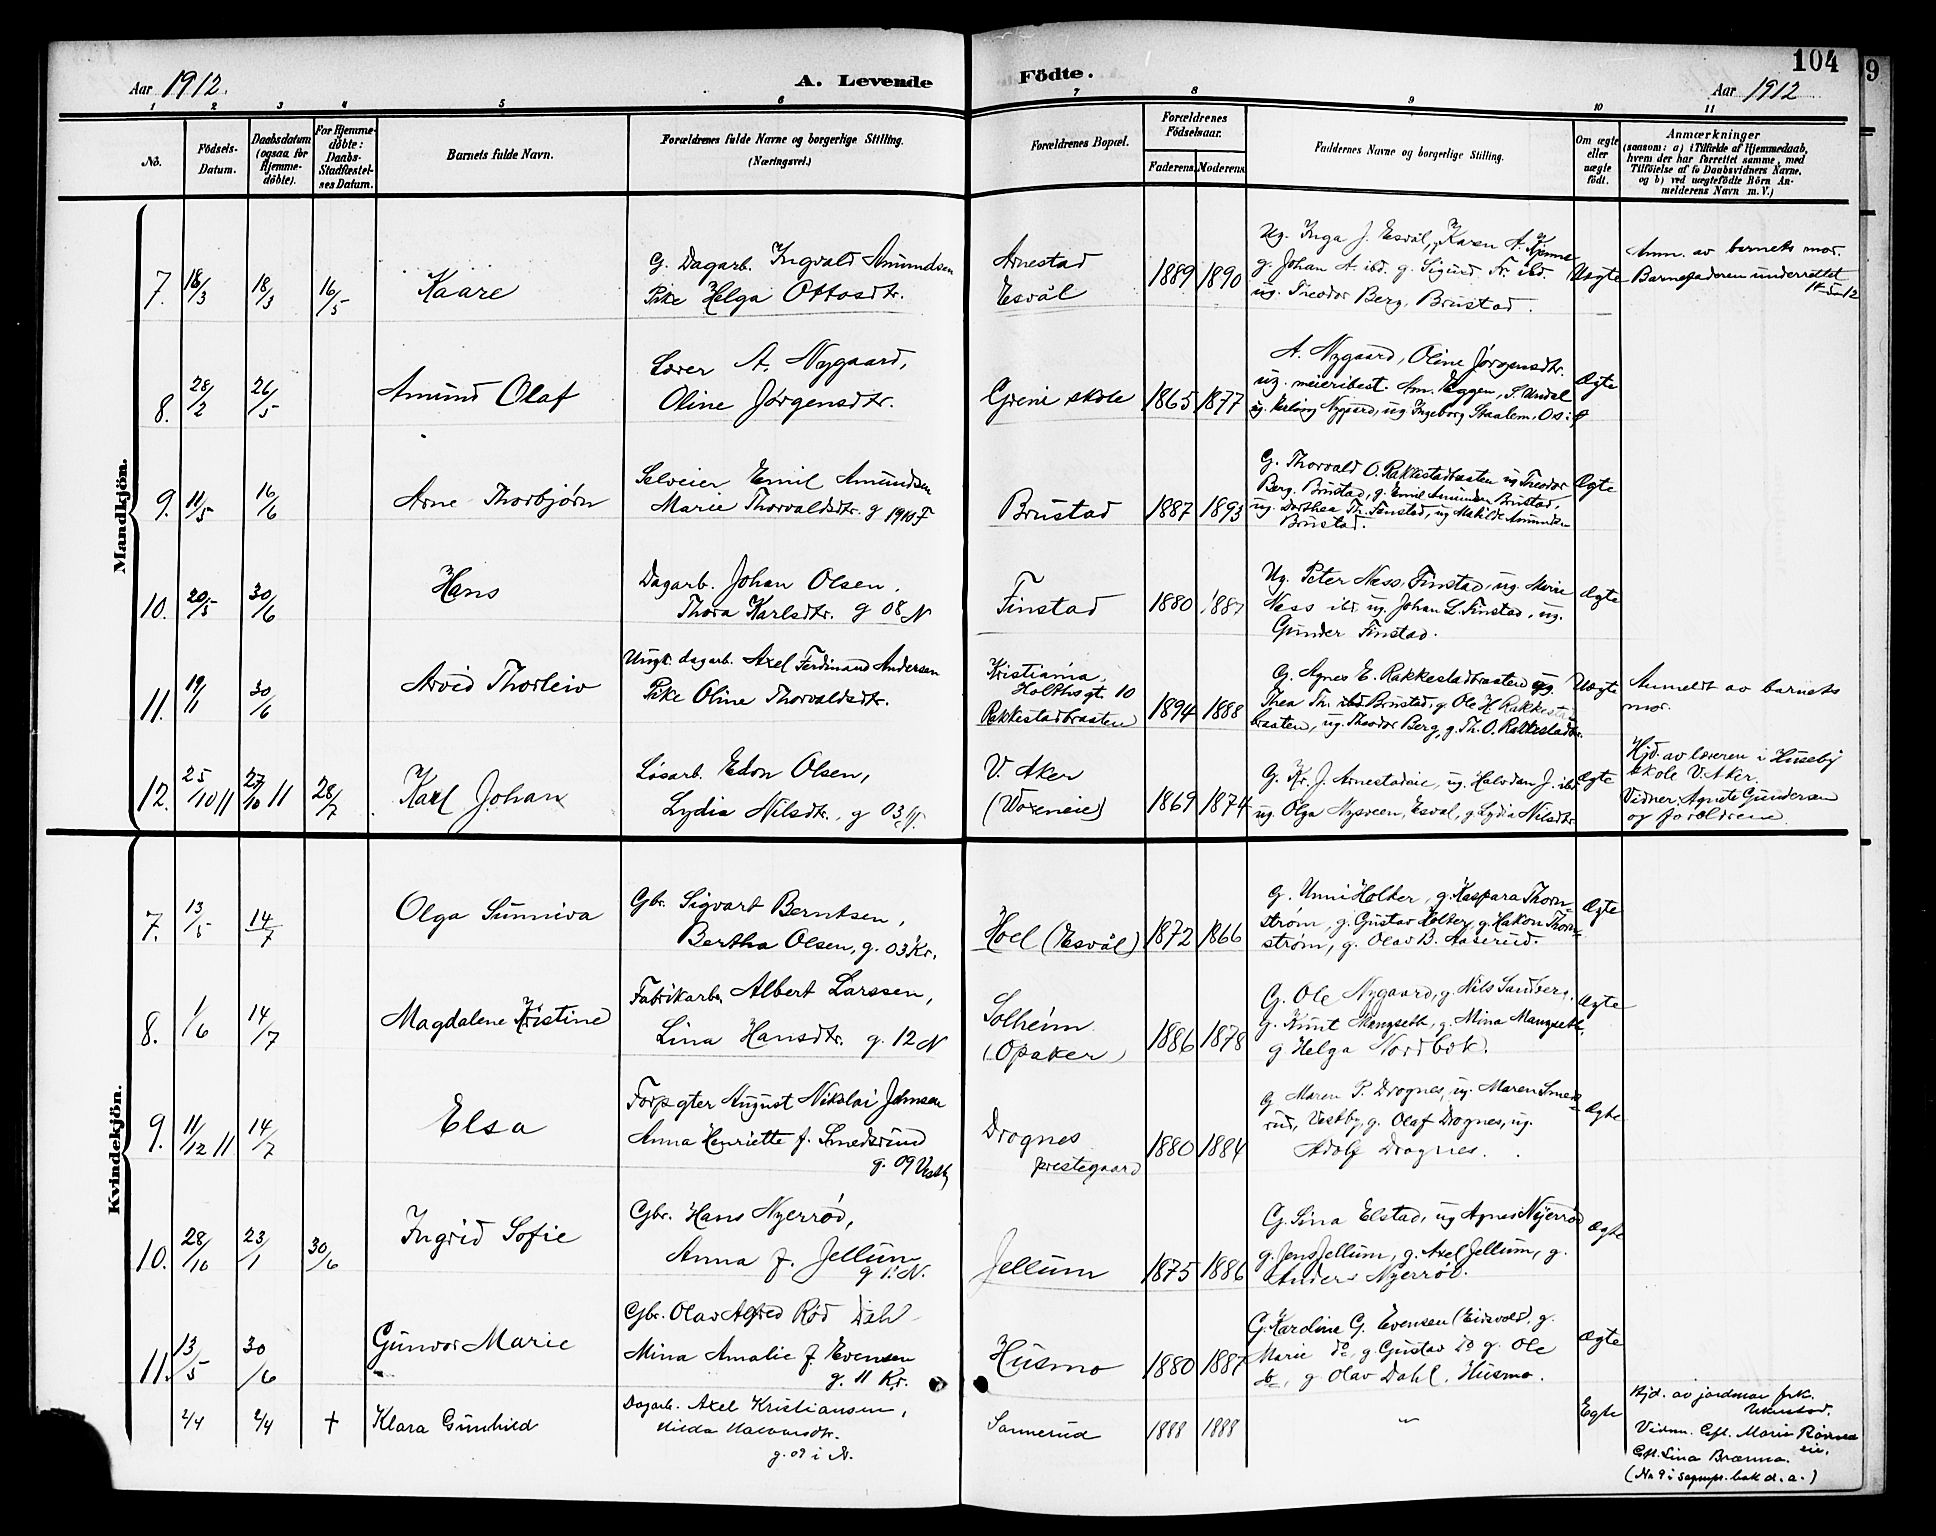 104
9
Aar 1912.
A. Levende
Födte.
Aar 1912
1 2 3 4 5 6 7 8 9 10 11
No.
Födsels-
Datum.
Daabsdatum
(ogsaa for
Hjemme-
döbte).
For Hjemme-
döbte:
Daabs-
Stadfæstel-
ses Datum.
Barnets fulde Navn.
Forældrenes fulde Navne og borgerlige Stilling.
(Næringsvei.)
Forældrenes Bopæl.
Forældrenes
Födselsaar.
Faderens.
Moderens.
Faddernes Navne og borgerlige Stilling.
Om ægte
eller
uægte
födt.
Anmærkninger
(saasom: a) i Tilfælde af Hjemmedaab,
hvem der har forrettet samme, med
Tilföielse af to Daabsvidners Navne,
og b) ved uægtefödte Börn An-
melderens Navn m. V.)
Mandkjön.
7. 18/3 18/3 16/5
Kaare
G. Dagarb. Ingvald Amundsen
Pike Helga Ottosdtr.
Arnestad
Esvål
1889 1890
Ug. Inga J. Esvål, Karen A.
g. Johan A. ibd. g. Sigurd Fr. ibd.
ug. Theodor Berg, Brustad.
Uægte
Anm. av barnets mor.
Barnefaderen underrettet
8. 28/2 26/5
Amund Olaf
Lærer A. Nygaard,
Oline Jørgensdtr.
Greni skole
1865 1877
A. Nygaard, Oline Jørgensdtr.
ug. meieribest. Am. Eggen, S.
ug. Erling Nygaard, ug Ingeborg Staalem, Os.
Ægte
9. 11/5 16/6
Arne Thorbjørn
Selveier Emil Amundsen
Marie Thorvaldsdtr. g 1910 F
Brustad
1887 1893
G. Thorvald O. Rakkestadbraaten ug Theodor
Berg, Brustad, g. Emil Amundsen Brustad,
ug. Dorthea Th. Finstad, ug Matilde Amundsen
Brustad.
Ægte
10. 20/5 30/6
Hans
Dagarb. Johan Olsen,
Thora Karlsdtr. g 08 N
Finstad
1880 1887
Ug. Peter Ness, Finstad, ug. Marie
Ness ibd ug. Johan L. Finstad, ug.
Gunder Finstad.
Ægte
11. 19/1 30/6
Arvid Thorleiv
Ungk. dagarb. Axel Ferdinand Andersen
Pike Oline Thorvaldsdtr.
Kristiania,
Holthsgt. 10
Rakkestadbraaten
1894 1888
G. Agnes E. Rakkestadbraaten ug.
Thea Th. ibd Brustad, g Ole H Rakkestad
braaten, ug. Theodor Berg, g. Th. O. Rakkestadbr.
Uægte
Anmeldt av barnets
mor.
12. 25/10 11 27/10 11 28/7
Karl Johan
Løsarb. Edon Olsen,
Lydia Nilsdtr., g 03
V. Aker
(Voxneie)
1869 1874
G. Kr. J. Arnestadeie, ug. Halvdan J. ibd
ug. Olga Nysveen, Esval, g. Lydia Nilsdtr
Ægte
Hjd. av læreren i Huseby
skole V. Aker.
Vidner: Agnete Gundersen
og forældrene.
Kvindekjön.
7. 13/5 14/7
Olga Sunniva
Gbr. Sigvart Berntsen,
Bertha Olsen, g. 03 Kr.
Hoel (Esvål)
1872 1866
G. Unni Holter, g. Kaspara Thorn-
strøm, g. Gustav Holter, g. Hakon Thorn-
strøm, g. Olav B. Aaserud.
Ægte
8. 1/6 14/7
Magdalene Kristine
Fabrikarb. Albert Larssen,
Lina Hansdtr. g. 12 N
Solheim
(Opaker)
1886 1878
G. Ole Nygaard, g. Nils Sandberg,
g. Knut Mangseth, g. Mina Mangseth,
g Helga Nordbøk.
Ægte
9. 11/12 11 14/7
Elsa
Forpagter August Nikolai Johnsen
Anna Henriette f. Smedsrud
g. 09 Vestby
Drognes
prestegaard
1880 1884
g Maren P. Drognes, ug. Maren Smeds-
rud, Vestby, g. Olaf Drognes, ug.
Adolf Drognes.
Ægte
10. 28/10 23/1 30/6
Ingrid Sofie
Gbr. Hans Nyerrød,
Anna f. Jellum
g 11 N.
Jellum
1875 1886
G. Sina Elstad, ug Agnes Nyerrød
g. Jens Jellum, g. Axel Jellum, g.
Anders Nyerrød.
Ægte
11. 13/5 30/6
Gunvor Marie
Gbr. Olav Alfred Rød Dahl
Mina Amalie f Evensen
g. 11 Kr.
Husmo
1880 1887
G. Karoline G. Evensen (Eidsvold), g.
Marie do, g. Gustav do g. Ole
do, g Olav Dahl, Husmo.
Ægte
2/4 2/4 +
Klara Gunhild
Dagarb. Axel Kristiansen,
Hilda Halvorsdtr.
g. 09 i N.
Sannerud
1888 1888
"
Egte
Hjd. av jordmor frk.
Vidnn. Eft. Marie
eie.
Eft. Lina Brænna.
(No 9 i d. a.)